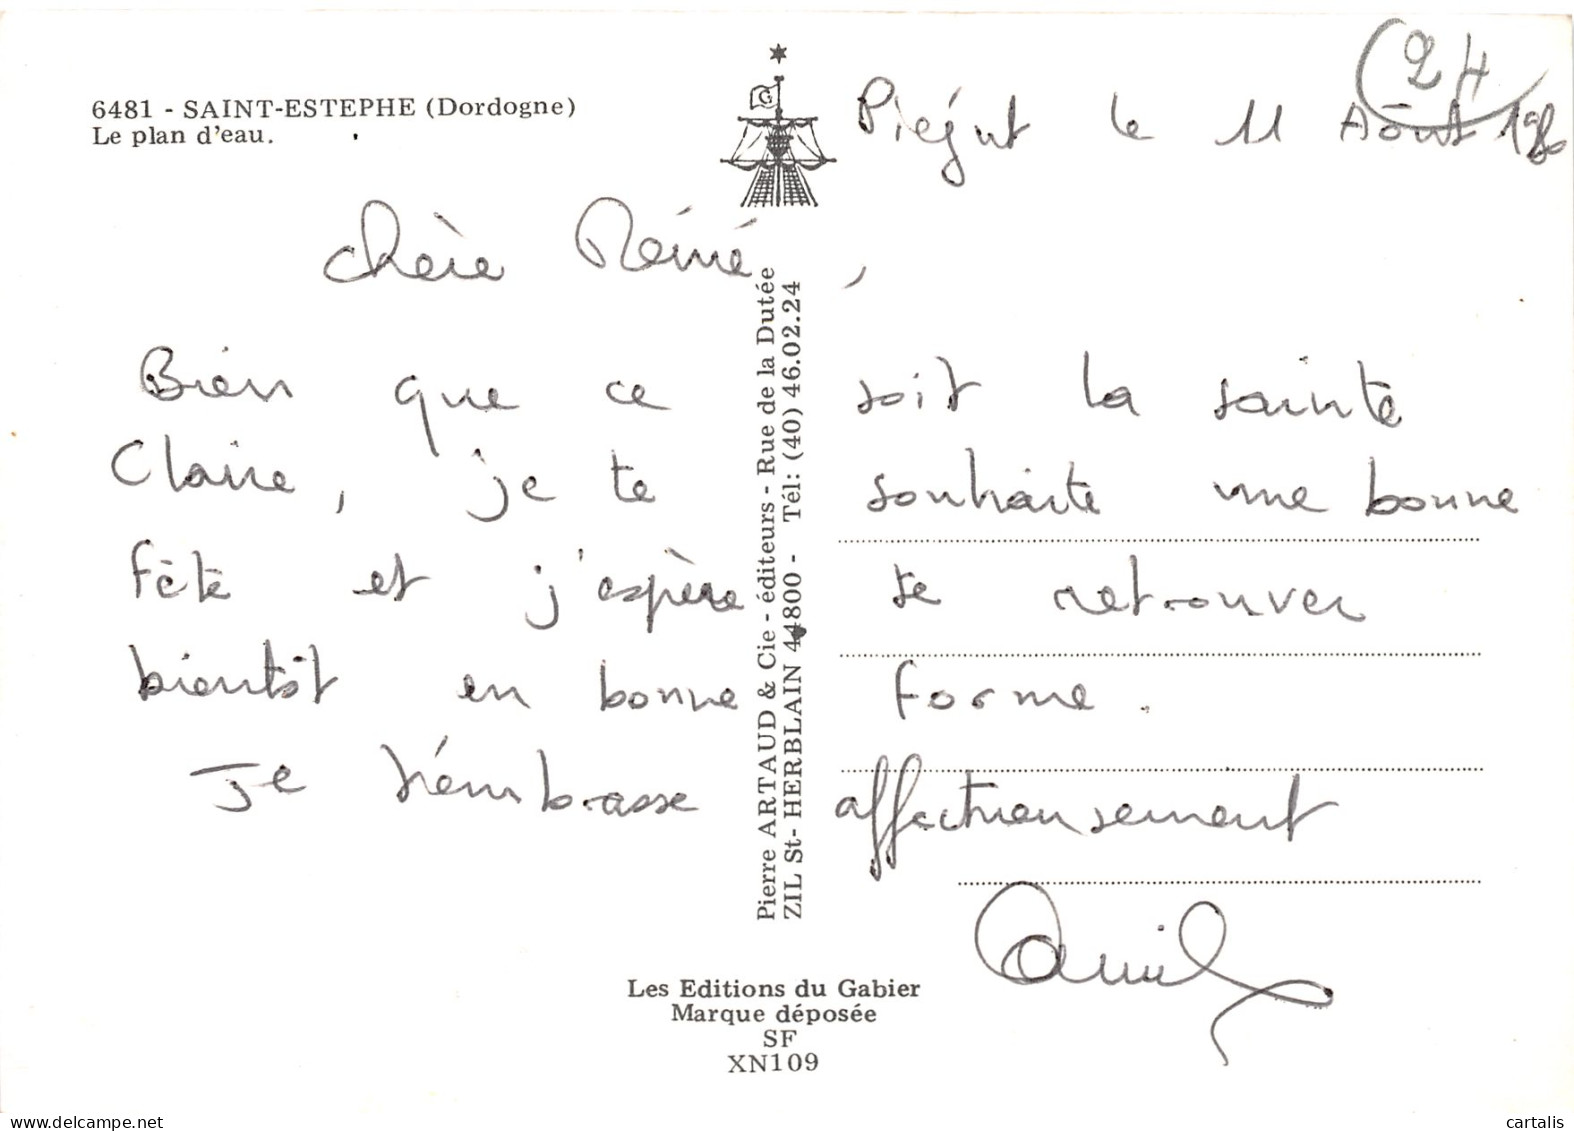 6481 - SAINT-ESTEPHE (Dordogne)
Le plan d'eau.
24
Piégut le 11 Août
chère
Bien que ce soit la sainte
Claire, je te souhaite une bonne
fête et j'espère te retrouver
bientôt en bonne forme.
Je t'embrasse affectueusement
Pierre ARTAUD & Cie - éditeurs - Rue de la Dutée
ZIL St- HERBLAIN 44800 - Tél: (40) 46.02.24
Les Editions du Gabier
Marque déposée
SF
XN109
cartalis